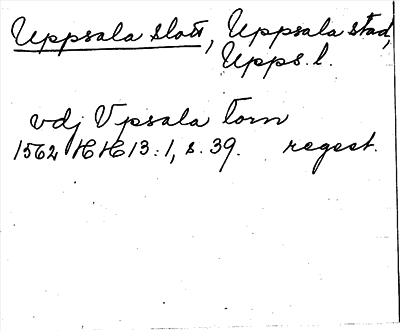 Uppsala slott, Uppsala stad,
Upps. l.
vdj Vpsala torn
1562 HH 13:1, s. 39. regest.